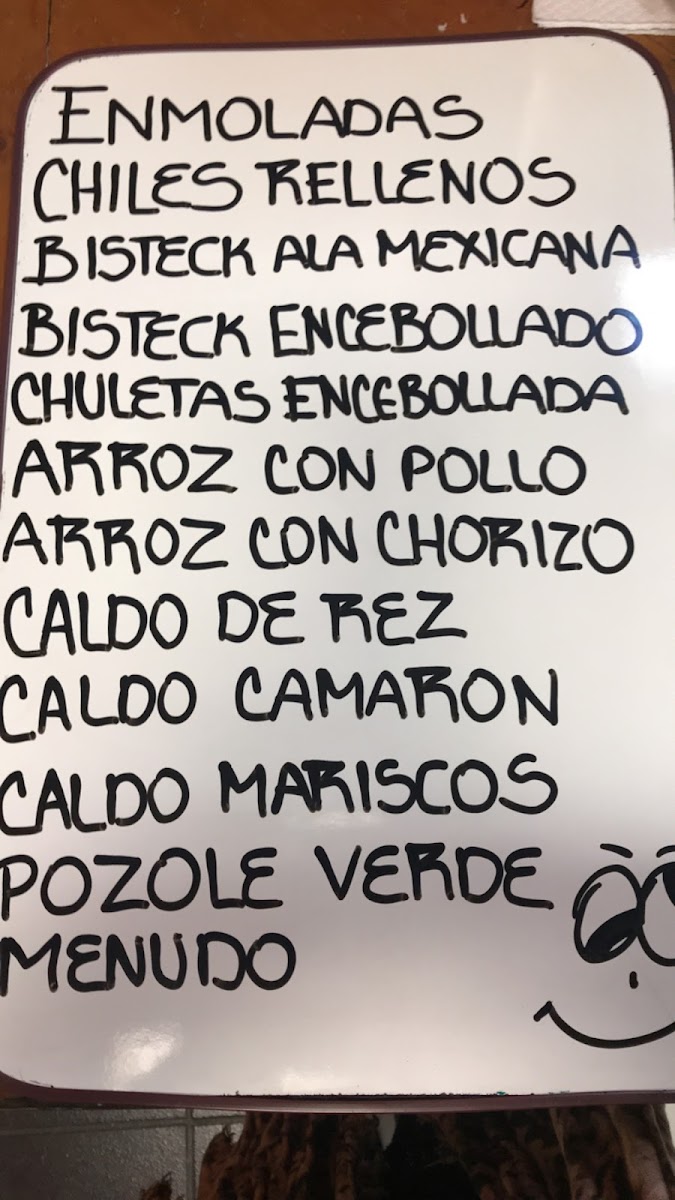 ENMOLADAS
CHILES RELLENOS
BISTECK ALA MEXICANA
BISTECK ENCEBOLLADO
CHULETAS ENCEBOLLADA
ARROZ CON POLLO
ARROZ CON CHORIZO
CALDO DE REZ
CALDO CAMARON
CALDO MARISCOS
POZOLE VERDE
MENUDO